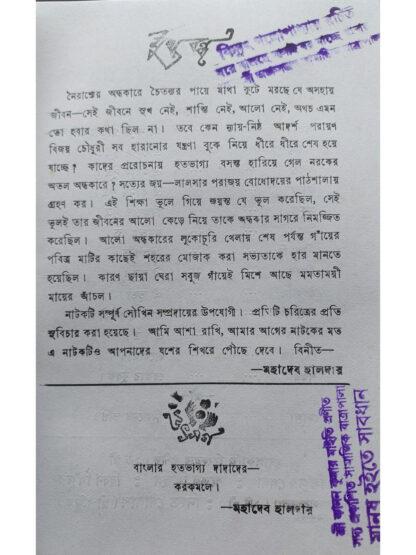 নৈরাশ্যের অন্ধকারে চৈতন্যর পায়ে মাথা কুটে মরছে যে অসহায়
জীবন—সেই জীবনে সুখ নেই, শান্তি নেই, আলো নেই, অথচ এমন
তো হবার কথা ছিল না। তবে কেন ন্যায়-নিষ্ঠ আদর্শ পরায়ণ
বিজয় চৌধুরী সব হারানোর যন্ত্রণা বুকে নিয়ে ধীরে ধীরে শেষ হয়ে
যাচ্ছে? কাদের প্ররোচনায় হতভাগ্য বসন্ত হারিয়ে গেল নরকের
অতল অন্ধকারে? সত্যের জয়—লালসার পরাজয় বোধোদয়ের পাঠশালায়
গ্রহণ কর। এই শিক্ষা ভুলে গিয়ে জয়ন্ত যে ভুল করেছিল, সেই
ভুলই তার জীবনের আলো কেড়ে নিয়ে তাকে অন্ধকার সাগরে নিমজ্জিত
করেছিল। আলো অন্ধকারের লুকোচুরি খেলায় শেষ পর্যন্ত গাঁয়ের
পবিত্র মাটির কাছেই শহরের মোজাক করা সভ্যতাকে হার মানতে
হয়েছিল। কারণ ছায়া ঘেরা সবুজ গাঁয়েই মিশে আছে মমতাময়ী
মায়ের আঁচল।
নাটকটি সম্পূর্ণ সৌখিন সম্প্রদায়ের উপযোগী। প্রতিটি চরিত্রের প্রতি
সুবিচার করা হয়েছে। আমি আশা রাখি, আমার আগের নাটকের মত
এ নাটকটিও আপনাদের যশের শিখরে পৌছে দেবে। বিনীত—
—মহাদেব হালদার
উৎসর্গ
বাংলার হতভাগ্য দাদাদের—
করকমলে।
—মহাদেব হালদার
শ্রী কানন কুমার মাইতি প্রণীত
সদ্য প্রকাশিত সামাজিক যাত্রাপালা
মানুষ হইতে সাবধান